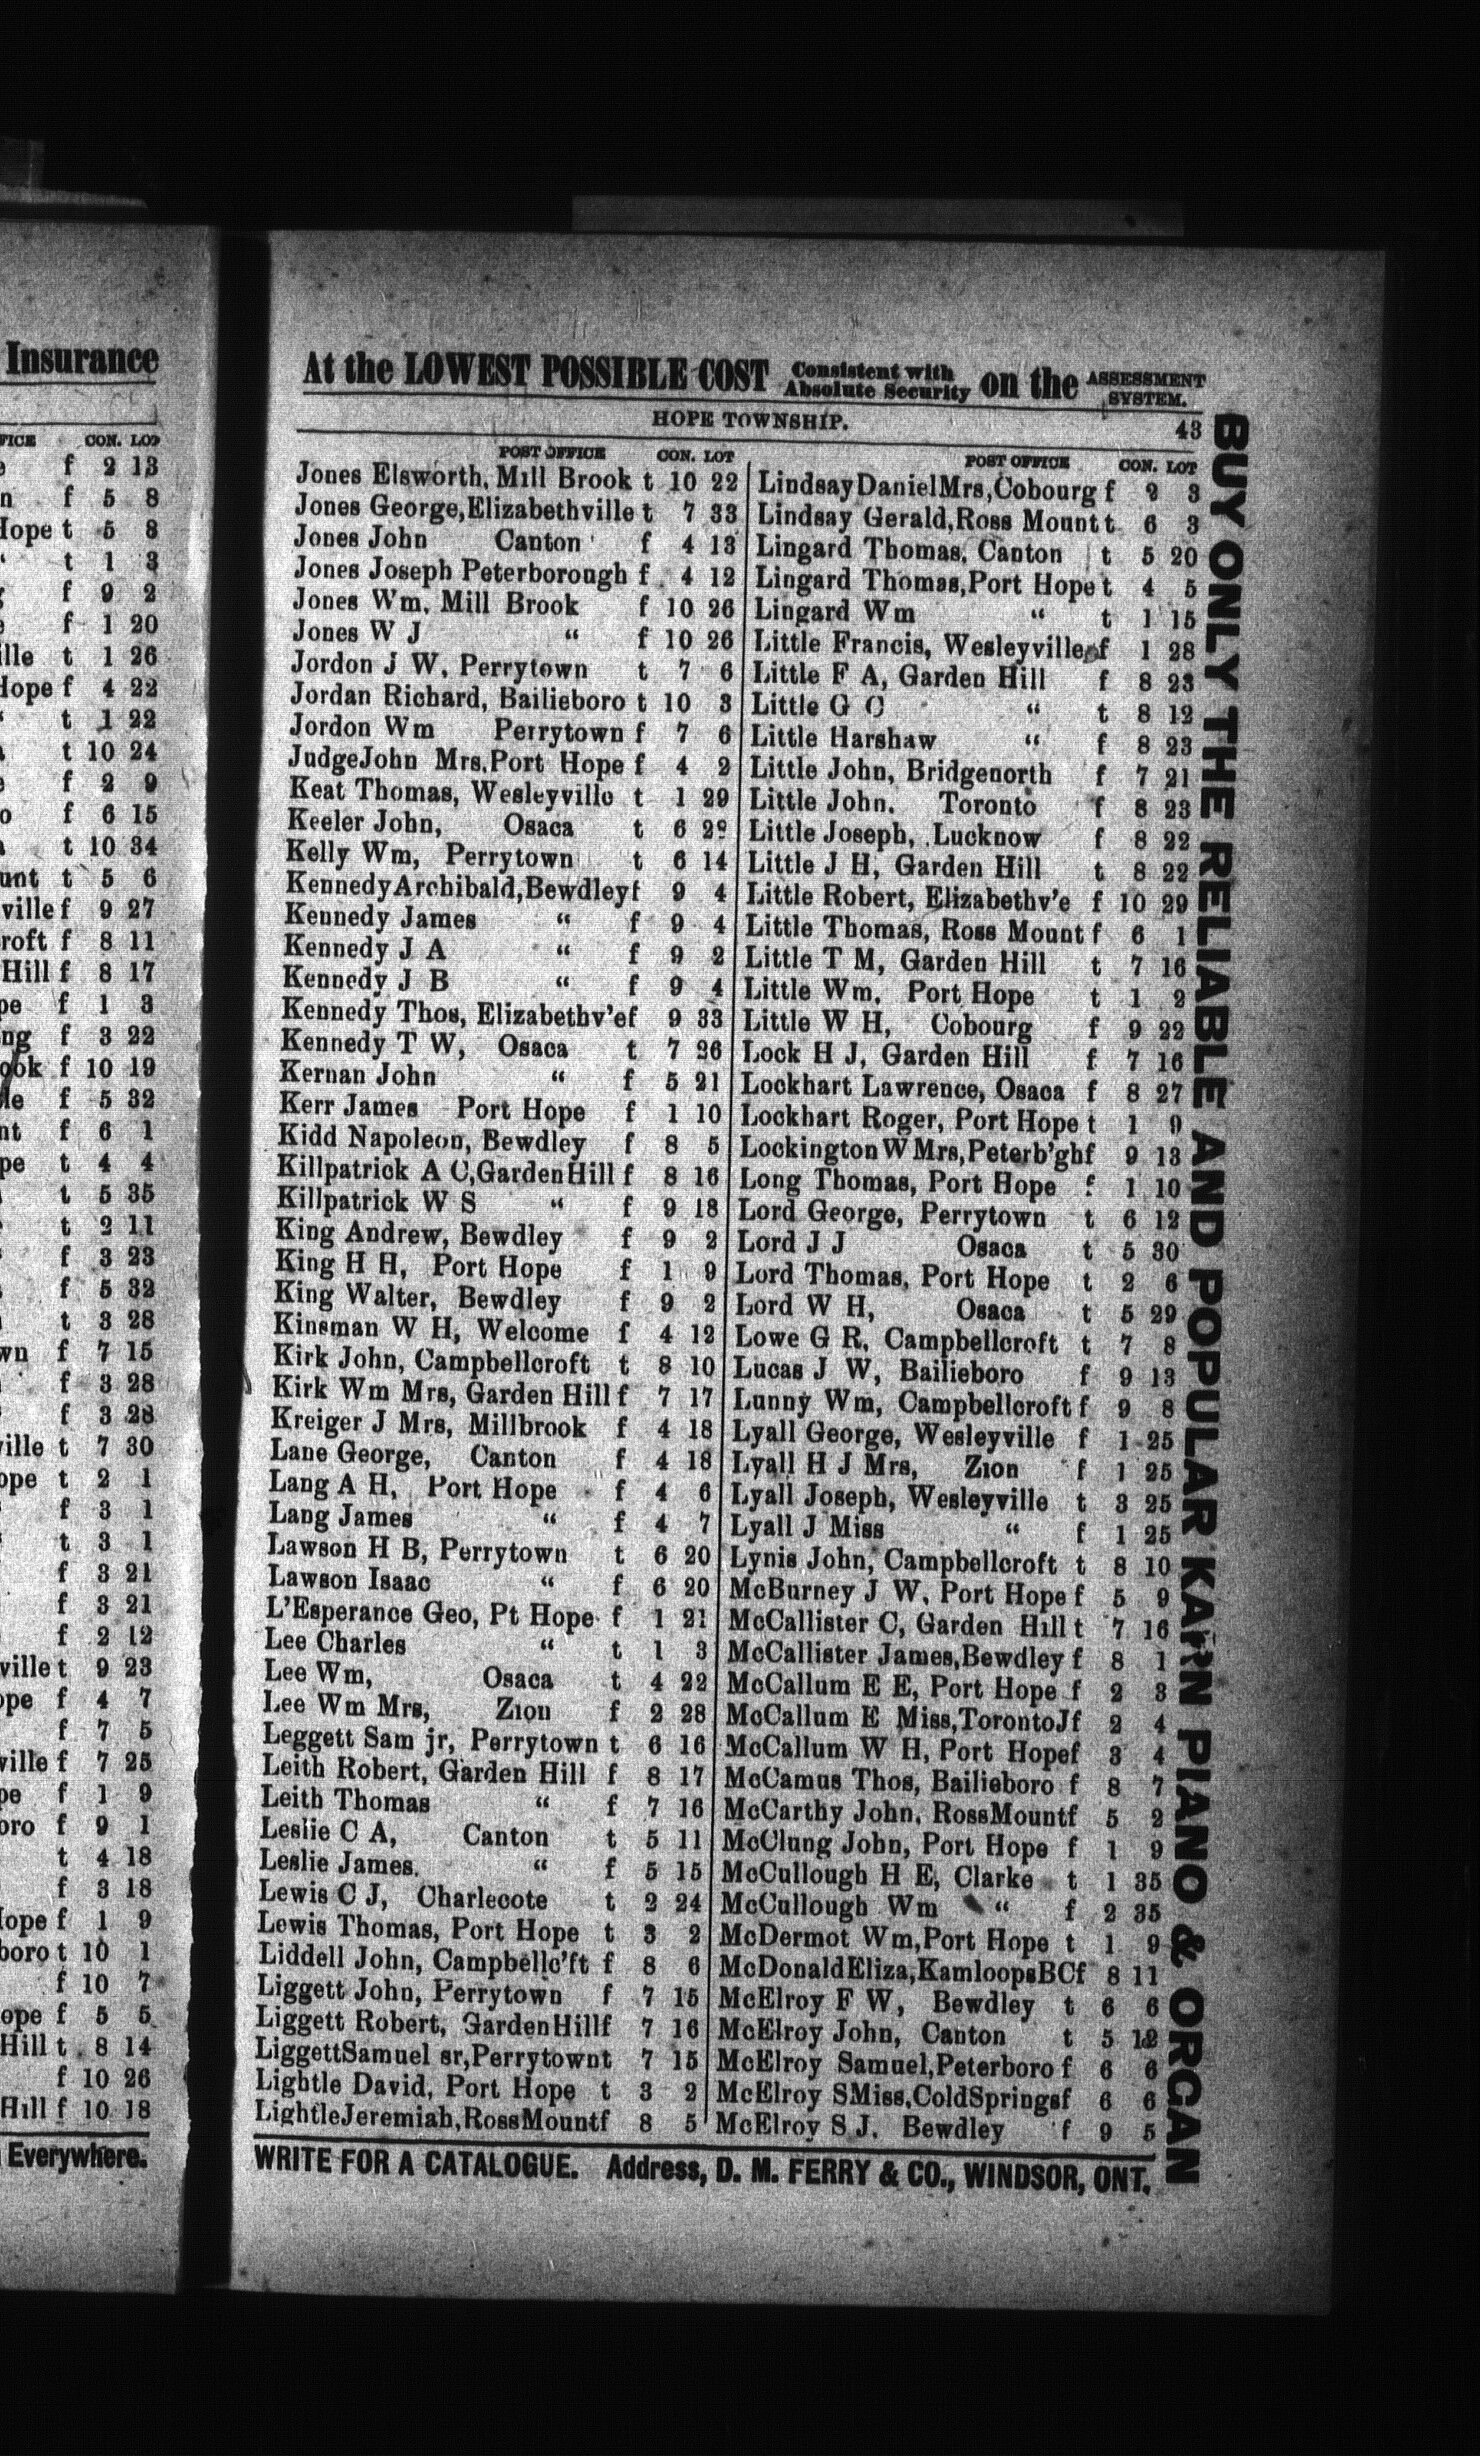 Insurance
FICE CON. LOT
f 2 13
f 5 8
Hope t 5 8
“ t 1 3
f 9 2
f 1 20
ille t 1 26
Hope f 4 22
t 1 22
t 10 24
f 2 9
f 6 15
t 10 34
unt t 5 6
ville f 9 27
roft f 8 11
Hill f 8 17
pe f 1 3
ng f 3 22
ook f 10 19
le f 5 32
nt f 6 1
pe t 4 4
t 5 35
t 2 11
f 3 23
f 5 32
t 3 28
wn f 7 15
f 3 28
f 3 28
ville t 7 30
ope t 2 1
f 3 1
t 3 1
f 3 21
f 3 21
f 2 12
ville t 9 23
ope f 4 7
f 7 5
ville f 7 25
pe f 1 9
oro f 9 1
t 4 18
f 3 18
Hope f 1 9
boro t 10 1
f 10 7
ope f 5 5
Hill t 8 14
f 10 26
Hill f 10 18
Everywhere.
At the LOWEST POSSIBLE COST Consistent with Absolute Security on the ASSESSMENT SYSTEM.
HOPE TOWNSHIP. 43
POST OFFICE CON. LOT
Jones Elsworth, Mill Brook t 10 22
Jones George,Elizabethville t 7 33
Jones John Canton f 4 13
Jones Joseph Peterborough f 4 12
Jones Wm, Mill Brook f 10 26
Jones W J “ f 10 26
Jordon J W, Perrytown t 7 6
Jordan Richard, Bailieboro t 10 3
Jordon Wm Perrytown f 7 6
JudgeJohn Mrs,Port Hope f 4 2
Keat Thomas, Wesleyville t 1 29
Keeler John, Osaca t 6
Kelly Wm, Perrytown t 6 14
KennedyArchibald,Bewdleyf 9 4
Kennedy James “ f 9 4
Kennedy J A “ f 9 2
Kennedy J B “ f 9 4
Kennedy Thos, Elizabethv'ef 9 33
Kennedy T W, Osaca t 7 26
Kernan John “ f 5 21
Kerr James Port Hope f 1 10
Kidd Napoleon, Bewdley f 8 5
Killpatrick A C,GardenHill f 8 16
Killpatrick W S “ f 9 18
King Andrew, Bewdley f 9 2
King H H, Port Hope f 1 9
King Walter, Bewdley f 9 2
Kinsman W H, Welcome f 4 12
Kirk John, Campbellcroft t 8 10
Kirk Wm Mrs, Garden Hill f 7 17
Kreiger J Mrs, Millbrook f 4 18
Lane George, Canton f 4 18
Lang A H, Port Hope f 4 6
Lang James “ f 4 7
Lawson H B, Perrytown t 6 20
Lawson Isaac “ f 6 20
L'Esperance Geo, Pt Hope f 1 21
Lee Charles “ t 1 3
Lee Wm, Osaca t 4 22
Lee Wm Mrs, Zion f 2 28
Leggett Sam jr, Perrytown t 6 16
Leith Robert, Garden Hill f 8 17
Leith Thomas “ f 7 16
Leslie C A, Canton t 5 11
Leslie James, “ f 5 15
Lewis C J, Charlecote t 2 24
Lewis Thomas, Port Hope t 3 2
Liddell John, Campbellc'ft f 8 6
Liggett John, Perrytown f 7 15
Liggett Robert, GardenHillf 7 16
LiggettSamuel sr,Perrytownt 7 15
Lightle David, Port Hope t 3 2
LightleJeremiah,RossMountf 8 5
POST OFFICE CON. LOT
LindsayDanielMrs,Cobourg f 9 3
Lindsay Gerald,Ross Mount t 6 3
Lingard Thomas, Canton t 5 20
Lingard Thomas,Port Hope t 4 5
Lingard Wm “ t 1 15
Little Francis, Wesleyville f 1 28
Little F A, Garden Hill f 8 23
Little G C “ t 8 12
Little Harshaw “ f 8 23
Little John, Bridgenorth f 7 21
Little John, Toronto f 8 23
Little Joseph, Lucknow f 8 22
Little J H, Garden Hill t 8 22
Little Robert, Elizabethv'e f 10 29
Little Thomas, Ross Mount f 6 1
Little T M, Garden Hill t 7 16
Little Wm, Port Hope t 1 2
Little W H, Cobourg f 9 22
Lock H J, Garden Hill f 7 16
Lockhart Lawrence, Osaca f 8 27
Lockhart Roger, Port Hope t 1 9
LockingtonWMrs,Peterb'ghf 9 13
Long Thomas, Port Hope f 1 10
Lord George, Perrytown t 6 12
Lord J J Osaca t 5 30
Lord Thomas, Port Hope t 2 6
Lord W H, Osaca t 5 29
Lowe G R, Campbellcroft t 7 8
Lucas J W, Bailieboro f 9 13
Lunny Wm, Campbellcroft f 9 8
Lyall George, Wesleyville f 1 25
Lyall H J Mrs, Zion f 1 25
Lyall Joseph, Wesleyville t 3 25
Lyall J Miss “ f 1 25
Lynis John, Campbellcroft t 8 10
McBurney J W, Port Hope f 5 9
McCallister C, Garden Hill t 7 16
McCallister James,Bewdley f 8 1
McCallum E E, Port Hope f 2 3
McCallum E Miss,TorontoJf 2 4
McCallum W H, Port Hopef 3 4
McCamus Thos, Bailieboro f 8 7
McCarthy John, RossMountf 5 2
McClung John, Port Hope f 1 9
McCullough H E, Clarke t 1 35
McCullough Wm “ f 2 35
McDermot Wm,Port Hope t 1 9
McDonaldEliza,KamloopsBCf 8 11
McElroy F W, Bewdley t 6 6
McElroy John, Canton t 5 12
McElroy Samuel,Peterboro f 6 6
McElroy SMiss,ColdSpringsf 6 6
McElroy S J, Bewdley f 9 5
WRITE FOR A CATALOGUE. Address, D. M. FERRY & CO., WINDSOR, ONT.
BUY ONLY THE RELIABLE AND POPULAR KARN PIANO & ORGAN